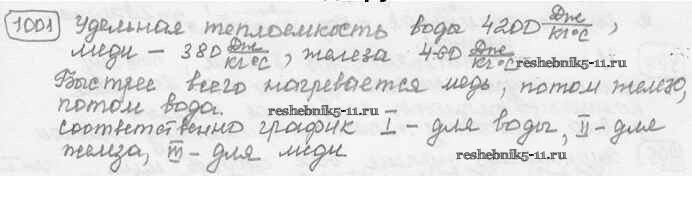 1001 Удельная теплоемкость вода 4200 Дж/кг·°С,
меди – 380 Дж/кг·°С, железа 460 Дж/кг·°С
reshebnik5-11.ru
Быстрее всего нагревается медь, потом железо,
потом вода.
reshebnik5-11.ru
соответственно график I – для воды, II – для
железа, III – для меди
reshebnik5-11.ru